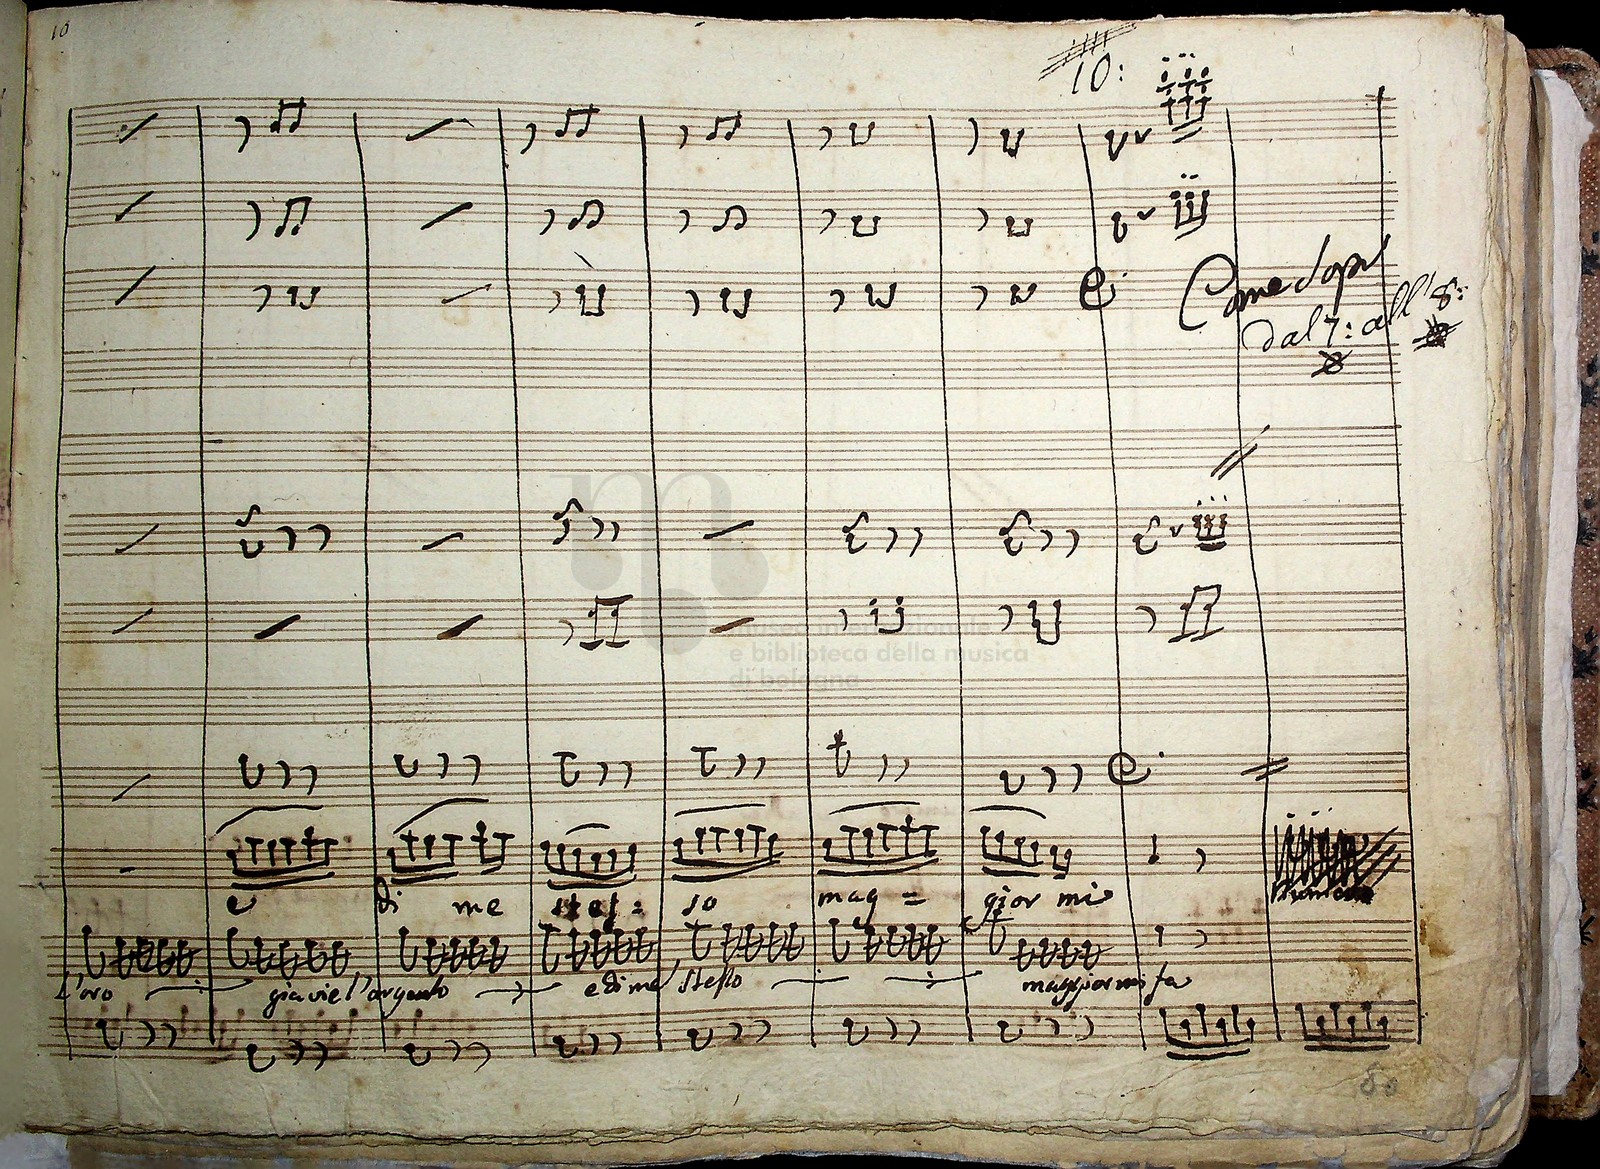 10
10:
Come sopra
dal 7: all' 8:
museo internazionale
e biblioteca della musica
di bologna
e di me stes= so mag= gior mi
L'oro già vie l'argento e di me stesso maggior mi fa
80